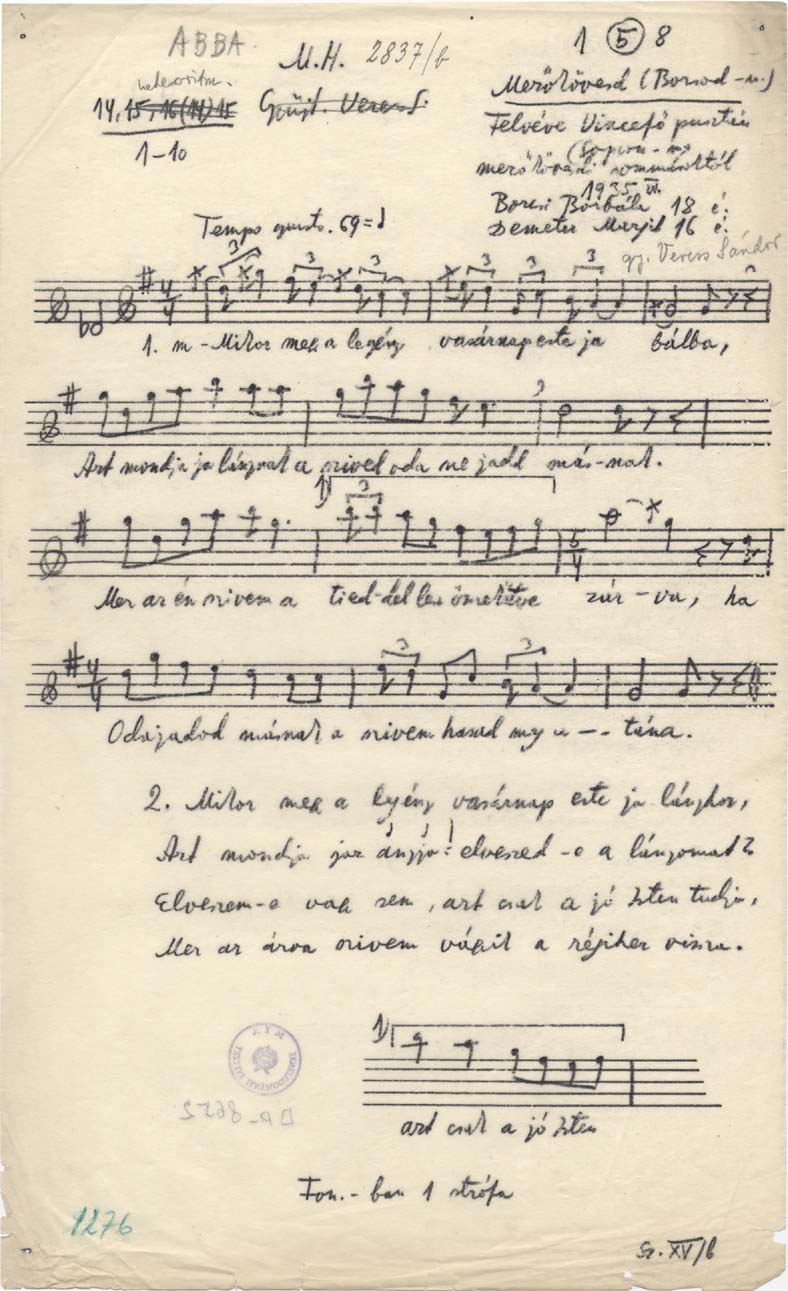 ABBA.
M.H. 2837/b
1 5 8
heteroritm.
14, 15, 16 (14) 15
Gyűjt. Veress S.
1-10
Mezőkövesd (Borsod-m.)
Felvéve Vincefő pusztán
(Sopron-m)
mezőkövesdi summásoktól
1935. VI.
Borsi Borbála 18 é.
Demeter Margit 16 é.
gy. Veress Sándor
Tempo giusto. 69=
1. m-Mikor mek a legény vasárnap este ja bálba,
Azt mondja ja lánynak a szived oda ne jadd más-nak.
1)
Mer az én szivem a tied-del lesz összekötve zúr-va, ha
Odajadod másnak a szivem hasad meg u-- tána.
2. Mikor mek a legény vasárnap este ja lányhoz,
Azt mondja jaz anyja: elveszed-e a lányomat?
Elveszem-e vak sem, azt csak a jó Isten tudja,
Mer az árva szivem vágik a régihez vissza.
1)
azt csak a jó Isten
Fon.-ban 1 strófa
1276
Sz. XV/b